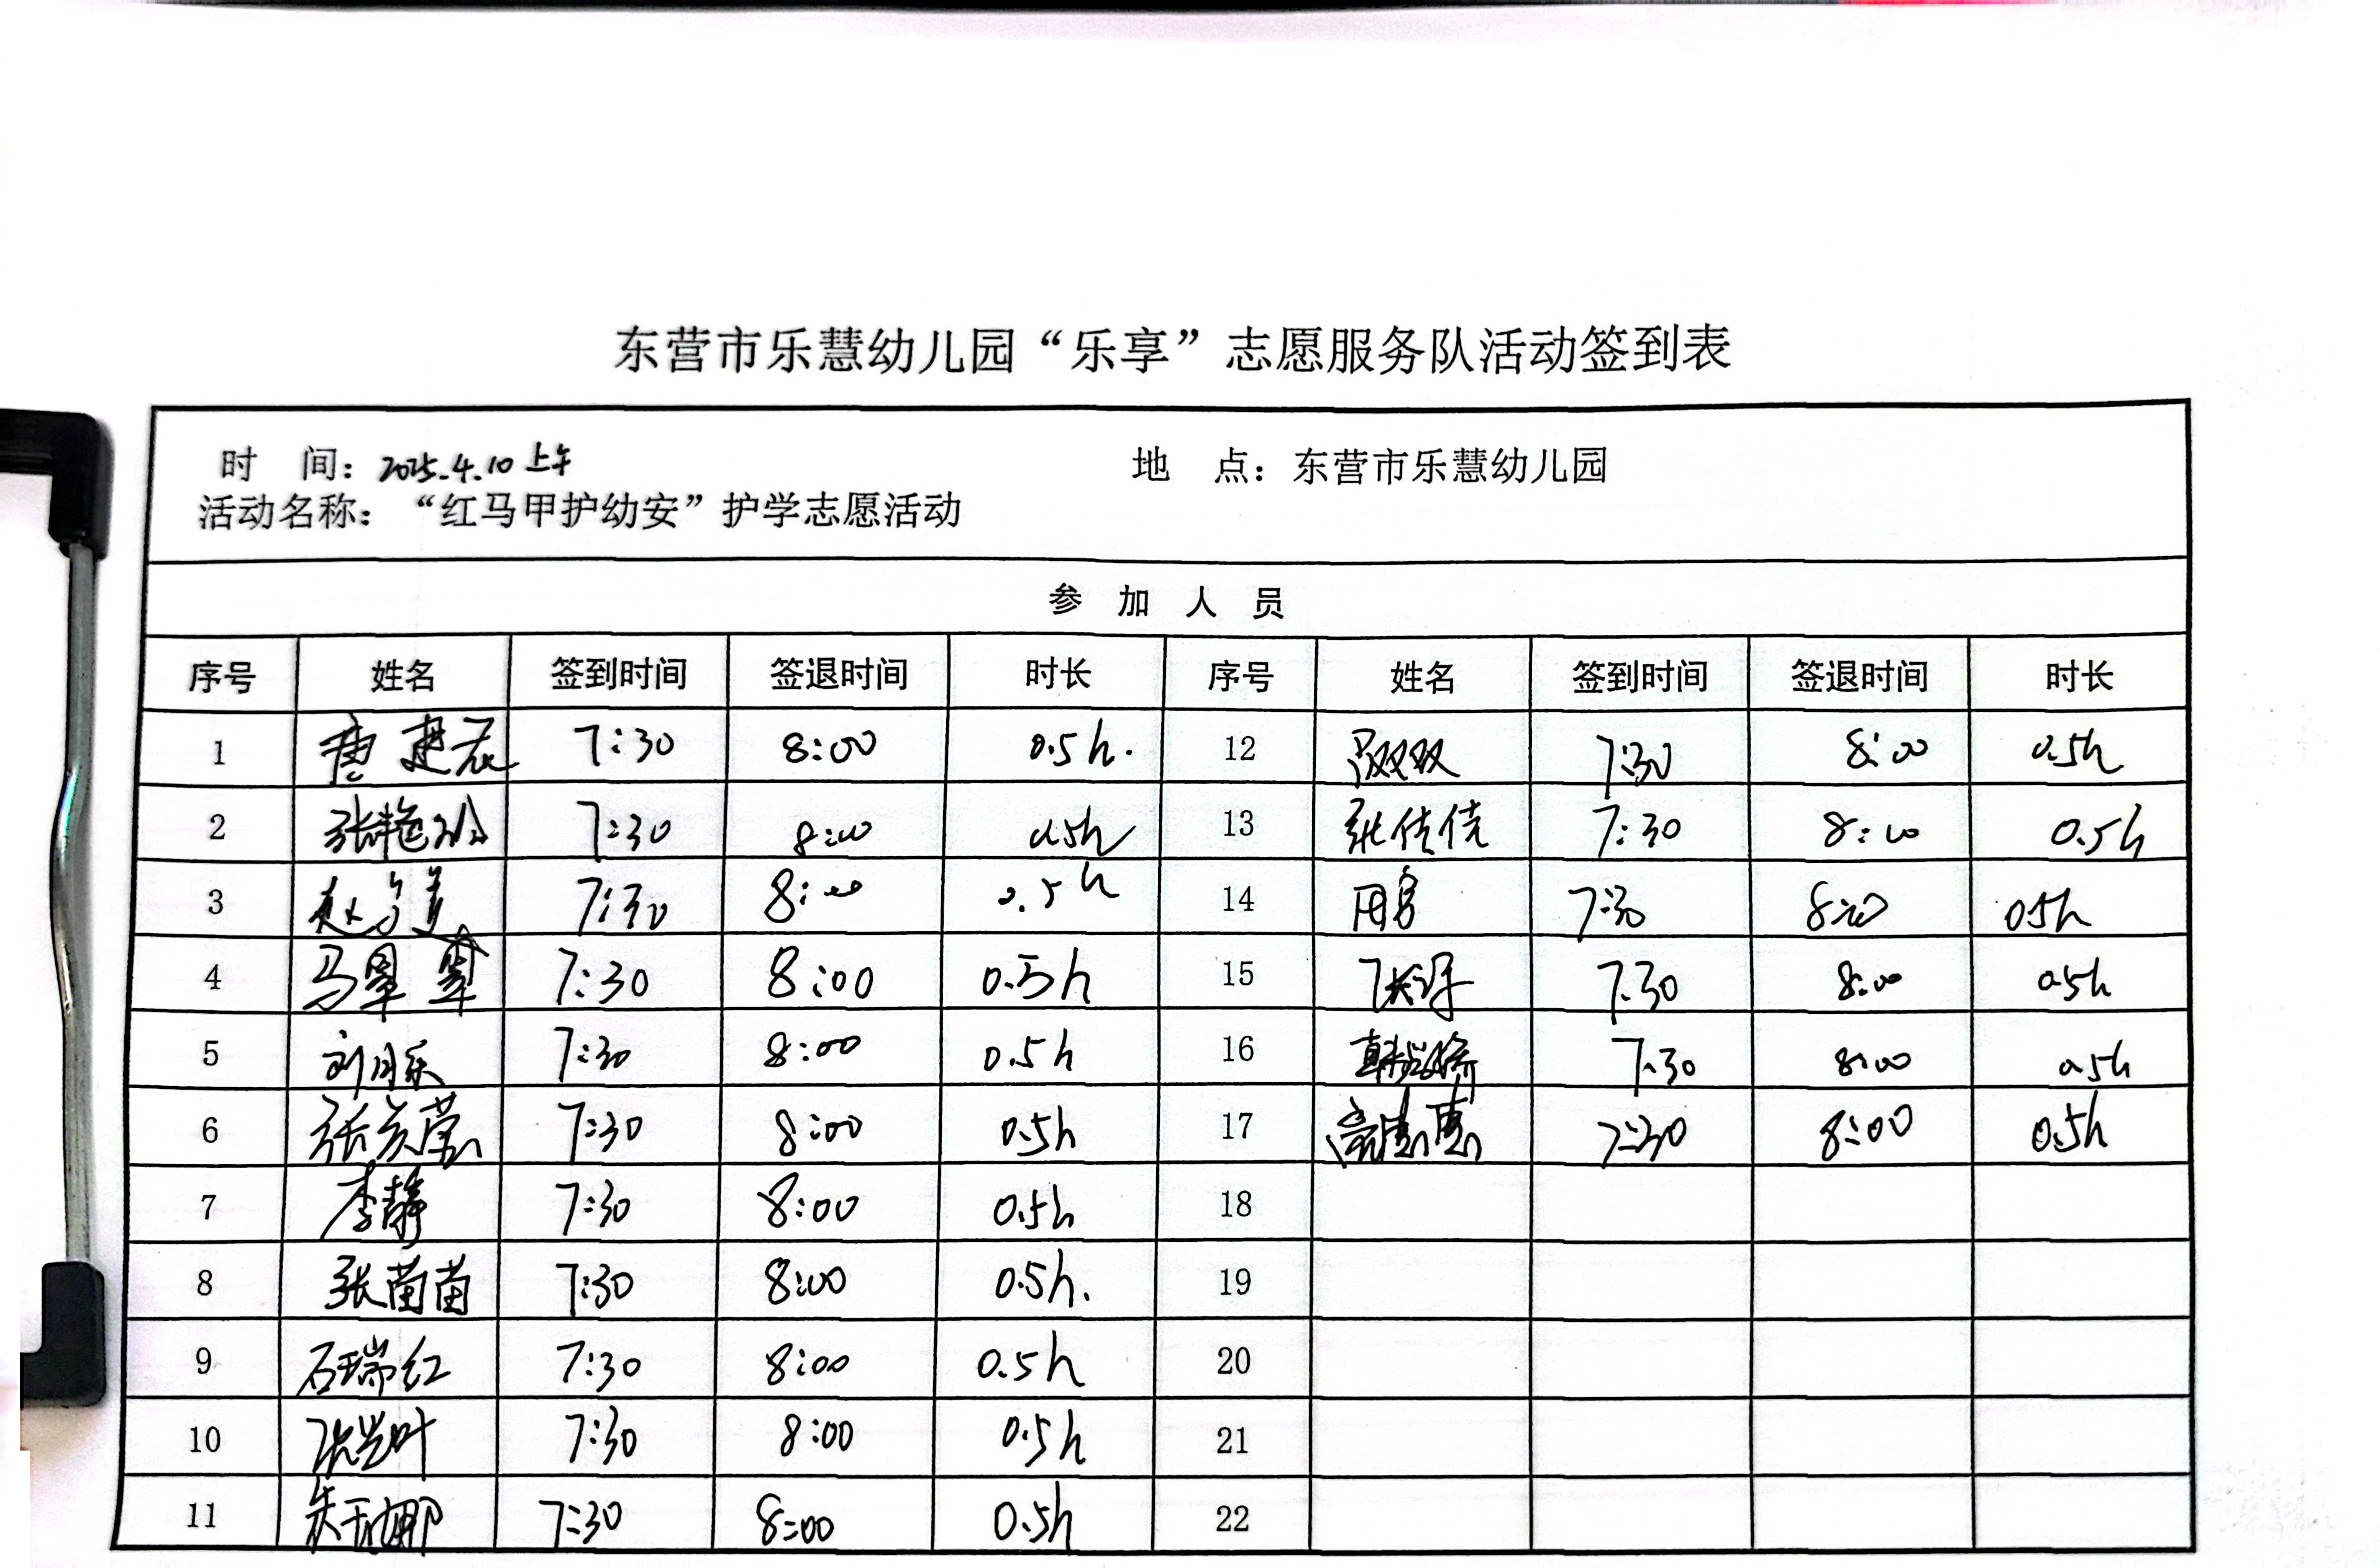 东营市乐慧幼儿园“乐享”志愿服务队活动签到表
时 间：2025.4.10 上午 地 点：东营市乐慧幼儿园
活动名称：“红马甲护幼安”护学志愿活动
参 加 人 员
序号 姓名 签到时间 签退时间 时长 序号 姓名 签到时间 签退时间 时长
1 7:30 8:00 0.5h. 12 双双 7:30 8:00 0.5h
2 张艳玲 7:30 8:00 0.5h 13 张倩倩 7:30 8:00 0.5h
3 赵 7:30 8:00 0.5h 14 7:30 8:00 0.5h
4 马翠翠 7:30 8:00 0.5h 15 7:30 8:00 0.5h
5 刘月乐 7:30 8:00 0.5h 16 韩 7:30 8:00 0.5h
6 张 莹 7:30 8:00 0.5h 17 高惠惠 7:30 8:00 0.5h
7 李静 7:30 8:00 0.5h 18
8 张苗苗 7:30 8:00 0.5h. 19
9 石瑞红 7:30 8:00 0.5h 20
10 张 叶 7:30 8:00 0.5h 21
11 朱 娜 7:30 8:00 0.5h 22